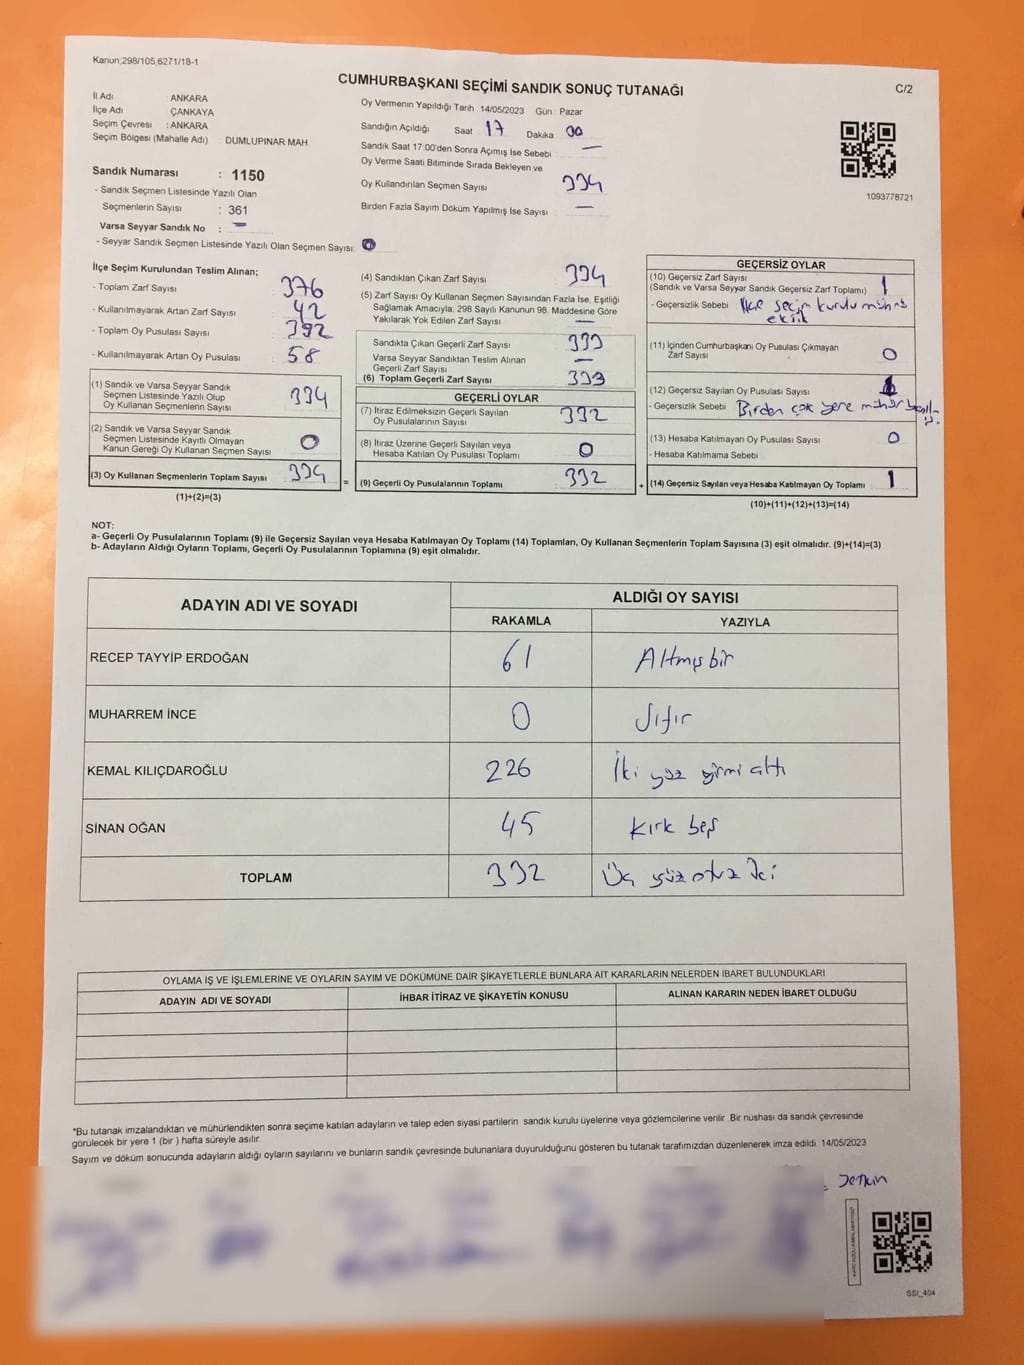 Kanun;298/105,6271/18-1
CUMHURBAŞKANI SEÇİMİ SANDIK SONUÇ TUTANAĞI
C/2
İl Adı ANKARA
İlçe Adı ÇANKAYA
Seçim Çevresi : ANKARA
Seçim Bölgesi (Mahalle Adı) : DUMLUPINAR MAH.
Sandık Numarası : 1150
- Sandık Seçmen Listesinde Yazılı Olan
Seçmenlerin Sayısı : 361
Varsa Seyyar Sandık No : -
- Seyyar Sandık Seçmen Listesinde Yazılı Olan Seçmen Sayısı: 0
Oy Vermenin Yapıldığı Tarih 14/05/2023 Gün : Pazar
Sandığın Açıldığı Saat 17 Dakika 00
Sandık Saat 17:00'den Sonra Açımış İse Sebebi : -
Oy Verme Saati Bitiminde Sırada Bekleyen ve
Oy Kullandırılan Seçmen Sayısı 334
Birden Fazla Sayım Döküm Yapılmış İse Sayısı -
1093778721
İlçe Seçim Kurulundan Teslim Alınan;
- Toplam Zarf Sayısı 376
- Kullanılmayarak Artan Zarf Sayısı 42
- Toplam Oy Pusulası Sayısı 392
- Kullanılmayarak Artan Oy Pusulası 58
(1) Sandık ve Varsa Seyyar Sandık
Seçmen Listesinde Yazılı Olup
Oy Kullanan Seçmenlerin Sayısı 334
(2) Sandık ve Varsa Seyyar Sandık
Seçmen Listesinde Kayıtlı Olmayan
Kanun Gereği Oy Kullanan Seçmen Sayısı 0
(3) Oy Kullanan Seçmenlerin Toplam Sayısı 334 =
(1)+(2)=(3)
(4) Sandıktan Çıkan Zarf Sayısı 334
(5) Zarf Sayısı Oy Kullanan Seçmen Sayısından Fazla İse, Eşitliği
Sağlamak Amacıyla; 298 Sayılı Kanunun 98. Maddesine Göre
Yakılarak Yok Edilen Zarf Sayısı -
Sandıkta Çıkan Geçerli Zarf Sayısı 333
Varsa Seyyar Sandıktan Teslim Alınan
Geçerli Zarf Sayısı -
(6) Toplam Geçerli Zarf Sayısı 333
GEÇERLİ OYLAR
(7) İtiraz Edilmeksizin Geçerli Sayılan
Oy Pusulalarının Sayısı 332
(8) İtiraz Üzerine Geçerli Sayılan veya
Hesaba Katılan Oy Pusulası Toplamı 0
(9) Geçerli Oy Pusulalarının Toplamı 332 +
GEÇERSİZ OYLAR
(10) Geçersiz Zarf Sayısı
(Sandık ve Varsa Seyyar Sandık Geçersiz Zarf Toplamı) 1
- Geçersizlik Sebebi İlçe seçim kurulu mührü
eksik
(11) İçinden Cumhurbaşkanı Oy Pusulası Çıkmayan
Zarf Sayısı 0
(12) Geçersiz Sayılan Oy Pusulası Sayısı 1
- Geçersizlik Sebebi Birden çok yere mühür
(13) Hesaba Katılmayan Oy Pusulası Sayısı 0
- Hesaba Katılmama Sebebi
(14) Geçersiz Sayılan veya Hesaba Katılmayan Oy Toplamı 1
(10)+(11)+(12)+(13)=(14)
NOT:
a- Geçerli Oy Pusulalarının Toplamı (9) ile Geçersiz Sayılan veya Hesaba Katılmayan Oy Toplamı (14) Toplamları, Oy Kullanan Seçmenlerin Toplam Sayısına (3) eşit olmalıdır. (9)+(14)=(3)
b- Adayların Aldığı Oyların Toplamı, Geçerli Oy Pusulalarının Toplamına (9) eşit olmalıdır.
ADAYIN ADI VE SOYADI ALDIĞI OY SAYISI
RAKAMLA YAZIYLA
RECEP TAYYİP ERDOĞAN 61 Altmış bir
MUHARREM İNCE 0 Sıfır
KEMAL KILIÇDAROĞLU 226 İki yüz yirmi altı
SİNAN OĞAN 45 Kırk beş
TOPLAM 332 Üç yüz otuz iki
OYLAMA İŞ VE İŞLEMLERİNE VE OYLARIN SAYIM VE DÖKÜMÜNE DAİR ŞİKAYETLERLE BUNLARA AİT KARARLARIN NELERDEN İBARET BULUNDUKLARI
ADAYIN ADI VE SOYADI İHBAR İTİRAZ VE ŞİKAYETİN KONUSU ALINAN KARARIN NEDEN İBARET OLDUĞU
*Bu tutanak imzalandıktan ve mühürlendikten sonra seçime katılan adayların ve talep eden siyasi partilerin sandık kurulu üyelerine veya gözlemcilerine verilir. Bir nüshası da sandık çevresinde
görülecek bir yere 1 (bir ) hafta süreyle asılır.
Sayım ve döküm sonucunda adayların aldığı oyların sayılarını ve bunların sandık çevresinde bulunanlara duyurulduğunu gösteren bu tutanak tarafımızdan düzenlenerek imza edildi. 14/05/2023
SSI_404